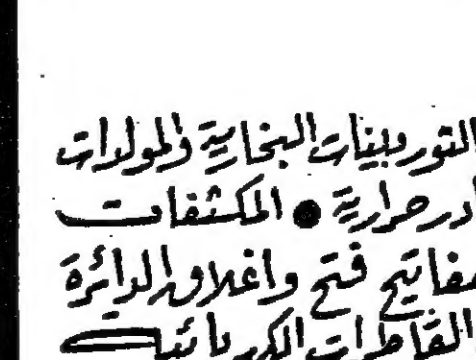 التوربينات البخارية والمولدات
حرارية ● المكثفات
مفاتيح فتح واغلاق الدائرة
القاطرات الكهربائية